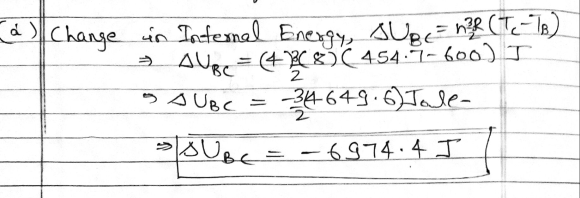 (d) Change in Internal Energy, ΔU_BC = n 3/2 R (T_C - T_B)
⇒ ΔU_BC = (4) 3/2 (8) (454.7 - 600) J
⇒ ΔU_BC = -3/2 (4649.6) Joule
⇒ ΔU_BC = -6974.4 J